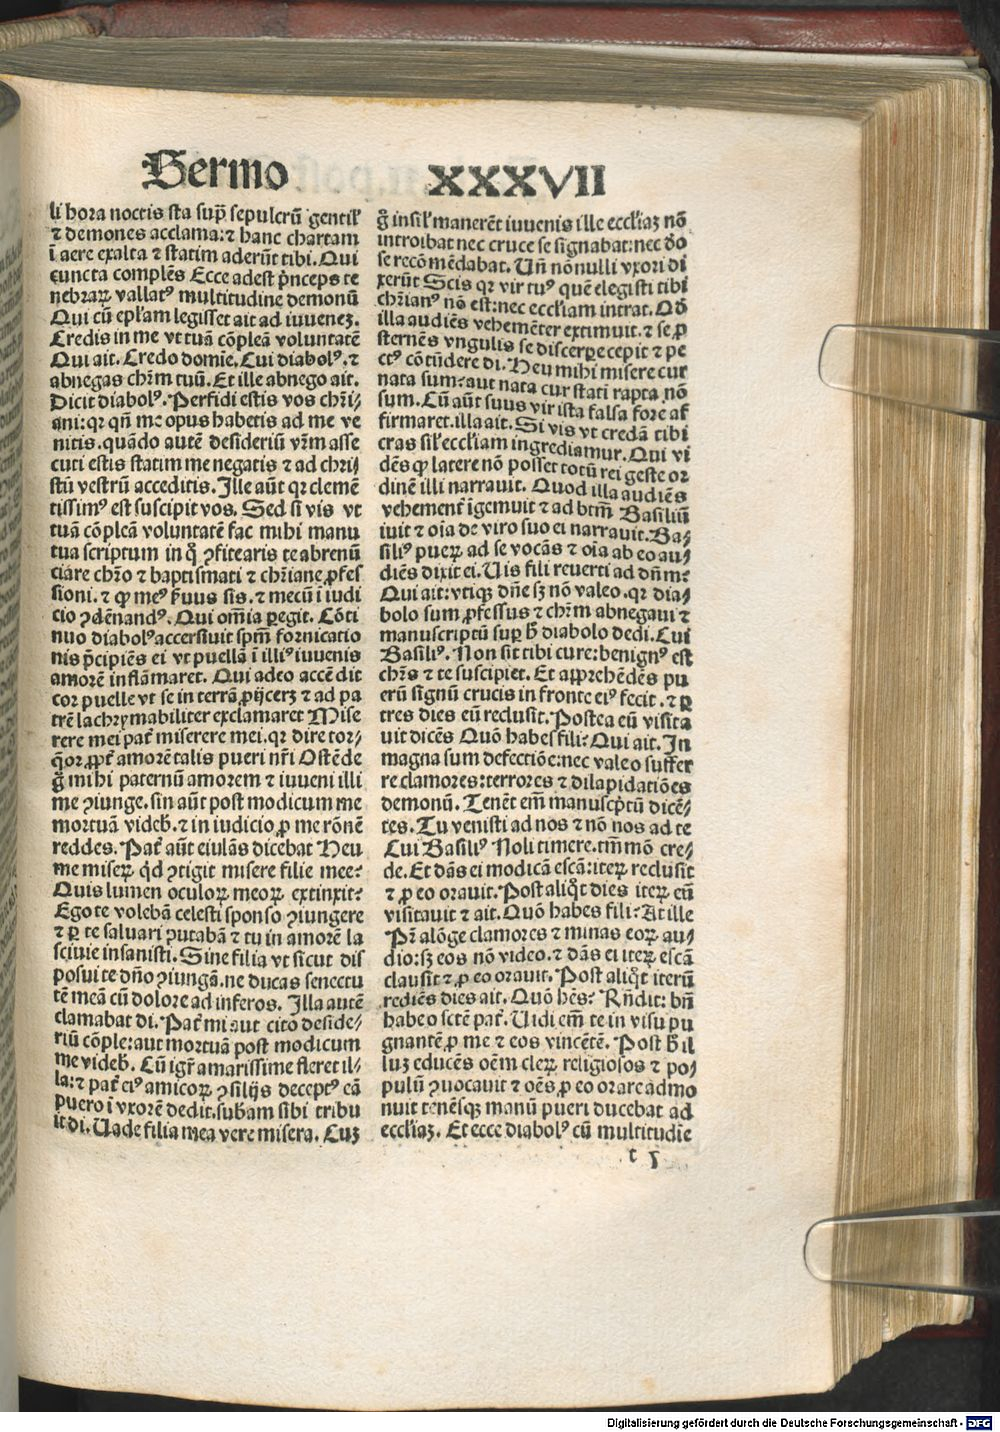 Sermo XXXVII
li hora noctis sta sup̄ sepulcrū gentil'
⁊ demones acclama:⁊ hanc chartam
ī aere exalta ⁊ statim aderūt tibi. Qui
cuncta complēs Ecce adest p̄nceps te
nebraꝝ vallatꝰ multitudine demonū
Qui cū epl'am legisset ait ad iuuenez.
Credis in me vt tuā cōpleā voluntatē
Qui ait. Credo domīe. Cui diabolꝰ. ⁊
abnegas chr̄m tuū. Et ille abnego ait.
Dicit diabolꝰ. Perfidi estis vos chr̄i⸗
ani: qꝛ qn̄ me opus habetis ad me ve
nitis. quādo autē desideriū vr̄m asse
cuti estis statim me negatis ⁊ ad chri⸗
stū vestrū acceditis. Ille aūt qꝛ clemē
tissimꝰ est suscipit vos. Sed si vis vt
tuā cōpleā voluntatē fac mihi manu
tua scriptum in qͦ ꝯfitearis te abrenū
ciare chr̄o ⁊ baptismati ⁊ chr̄iane ꝓfes
sioni. ⁊ ꝙ meꝰ ẜuus sis. ⁊ mecū ī iudi
cio ꝯdēnandꝰ. Qui om̄ia ꝑegit. Cōti
nuo diabolꝰ accersiuit sp̄m fornicatio
nis p̄cipiēs ei vt puellā ī illiꝰ iuuenis
amorē inflāmaret. Qui adeo accēdit
cor puelle vt se in terrā ꝓijcerꝫ ⁊ ad pa
trē lachrymabiliter exclamaret Mise
rere mei pat̄ miserere mei. qꝛ dire tor⸗
q̄or ꝓpt̄ amorē talis pueri nr̄i Ostēde
g̊ mihi paternū amorem ⁊ iuueni illi
me ꝯiunge. sin aūt post modicum me
mortuā videb̄. ⁊ in iudicio ꝓ me rōnē
reddes. Pat̄ aūt eiulās dicebat Heu
me miseꝝ qͥd ꝯtigit misere filie mee?
Quis lumen oculoꝝ meoꝝ extinxit?
Ego te volebā celesti sponso ꝯiungere
⁊ ꝑ te saluari ꝯputabā ⁊ tu in amorē la
sciuie insanisti. Sine filia vt sicut dis
posui te dn̄o ꝯiungā. ne ducas senectu
tē meā cū dolore ad inferos. Illa autē
clamabat di. Pat̄ mi aut cito deside⸗
riū cōple: aut mortuā post modicum
me videb̄. Cū igr̄ amarissime fleret il⸗
la: ⁊ pat̄ eiꝰ amicoꝝ ꝯsilijs deceptꝰ eā
puero ī vxorē dedit. subam sibi tribu
it di. Uade filia mea vere misera. Cuꝫ
g̊ insil' manerēt iuuenis ille eccl'iaꝫ nō
introibat nec cruce se signabat: nec do
se recōmēdabat. Un̄ nōnulli vxori di
xerūt Scis qꝛ vir tuꝰ quē elegisti tibi
chr̄ianꝰ nō est: nec eccl'iam intrat. Qd̄
illa audiēs vehemēter extimuit. ⁊ se ꝓ
sternēs vngulis se discerꝑe cepit ⁊ pe
ctꝰ cōtūdere di. Heu mihi misere cur
nata sum? aut nata cur stati rapta nō
sum. Cū aūt suus vir ista falsa fore af
firmaret. illa ait. Si vis vt credā tibi
cras sil' eccl'iam ingrediamur. Qui vi
dēs ꝙ latere nō posset totū rei geste or
dinē illi narrauit. Quod illa audiēs
vehement̄ īgemuit ⁊ ad btm̄ Basiliū
iuit ⁊ oīa de viro suo ei narrauit. Ba⸗
siliꝰ pueꝝ ad se vocās ⁊ oīa ab eo au⸗
diēs dixit ei. Uis fili reuerti ad dn̄m?
Qui ait: vtiqꝫ dn̄e sꝫ nō valeo. qꝛ dia⸗
bolo sum ꝓfessus ⁊ chr̄m abnegaui ⁊
manuscriptū suꝑ h̄ diabolo dedi. Cui
Basiliꝰ. Non sit tibi cure: benignꝰ est
chr̄s ⁊ te suscipiet. Et apprehēdēs pu
erū signū crucis in fronte eiꝰ fecit. ⁊ ꝑ
tres dies eū reclusit. Postea eū visita
uit dicēs Quō habes fili? Qui ait. In
magna sum defectiōe: nec valeo suffer
re clamores: terrores ⁊ dilapidatiōes
demonū. Tenēt em̄ manuscp̄tū dicē⸗
tes. Tu venisti ad nos ⁊ nō nos ad te
Cui Basiliꝰ Noli timere. tm̄mō cre⸗
de. Et dās ei modicā escā: iteꝝ reclusit
⁊ ꝓ eo orauit. Post aliqͦt dies iteꝝ eū
visitauit ⁊ ait. Quō habes fili? At ille
Pr̄ alōge clamores ⁊ minas eoꝝ au⸗
dio: sꝫ eos nō video. ⁊ dās ei iteꝝ escā
clausit ⁊ ꝓ eo orauit. Post aliqͦt iterū
rediēs dies ait. Quō hēs? Rn̄dit: bn̄
habeo sctē pat̄. Uidi em̄ te in visu pu
gnantē ꝓ me ⁊ eos vincētē. Post h̄ il
luꝫ educēs oēm cleꝝ religiosos ⁊ po⸗
pulū ꝯuocauit ⁊ oēs ꝓ eo orare admo
nuit tenēsqꝫ manū pueri ducebat ad
eccl'iaꝫ. Et ecce diabolꝰ cū multitudīe
t 5
Digitalisierung gefördert durch die Deutsche Forschungsgemeinschaft - DFG